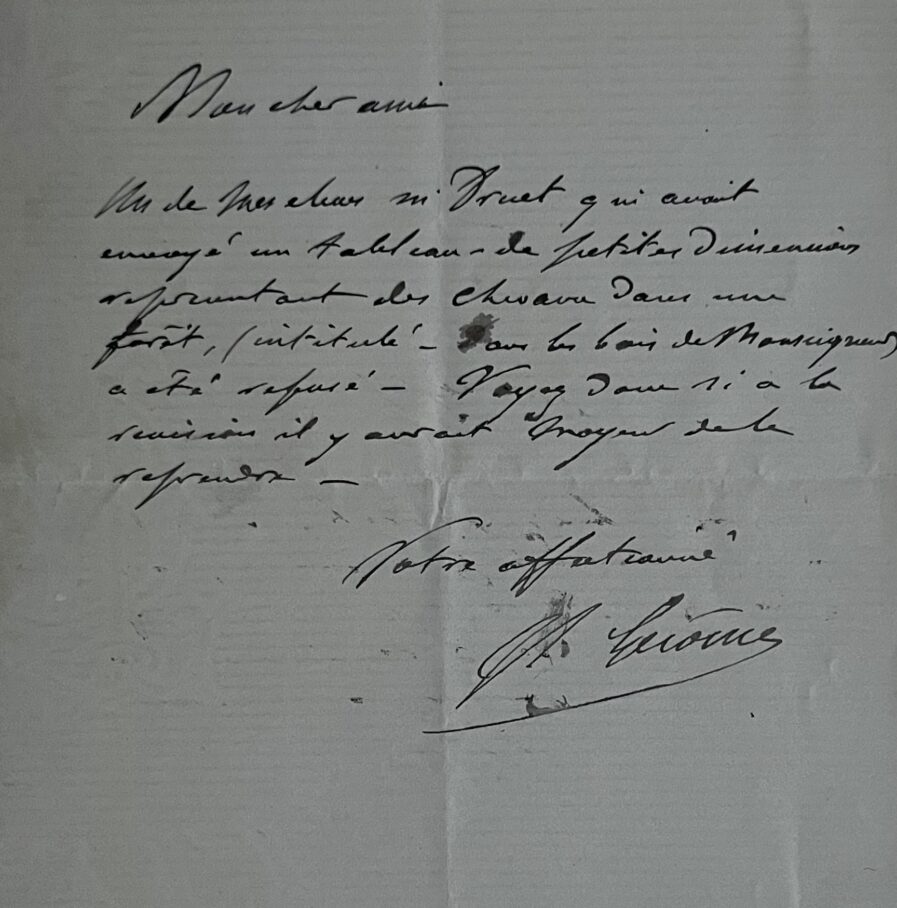 Mon cher ami
Un de mes eleves Mr Druet qui avait
envoyé un tableau - de petites dimensions
représentant des chevaux dans une
forêt, (intitulé - Dans les bois de Monseigneur
a été refusé - Voyez donc si a la
revision il y aurait moyen de le
reprendre -
Votre affectionné
Gerôme